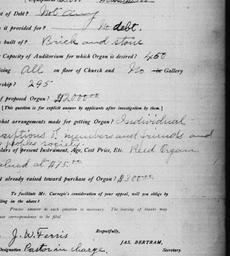 of Debt? Not any
is it provided for? No debt.
built of? Brick and stone
Capacity of Auditorium for which Organ is desired? 450
All on floor of Church and No in Gallery
ership? 295
of proposed Organ? $2000.00
[This question is for explicit answer by applicants after investigation by them.]
hat arrangements made for getting Organ? Individual
members and friends and
peoples society.
lars of present Instrument, Age, Cost Price, Etc. Reed Organ
alued at $75.00
t already raised toward purchase of Organ? $300.00
To facilitate Mr. Carnegie's consideration of your appeal, will you oblige by
ling in the above?
Precise answer to each question is necessary. The leaving of blanks may
correspondence to be filed.
Respectfully,
J. W. Ferris
JAS. BERTRAM,
esignation Pastor in charge.
Secretary.